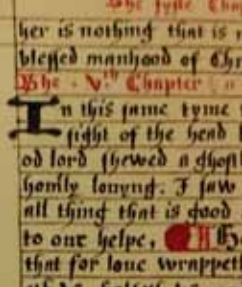 The fyfte Cha
her is nothing that is
blessed manhood of Chr
The . Vth Chapter
In this same tyme
sight of the head
od lord shewed a ghost
homly louyng. I saw
all thing that is good
to our helpe,
that for loue wrappet